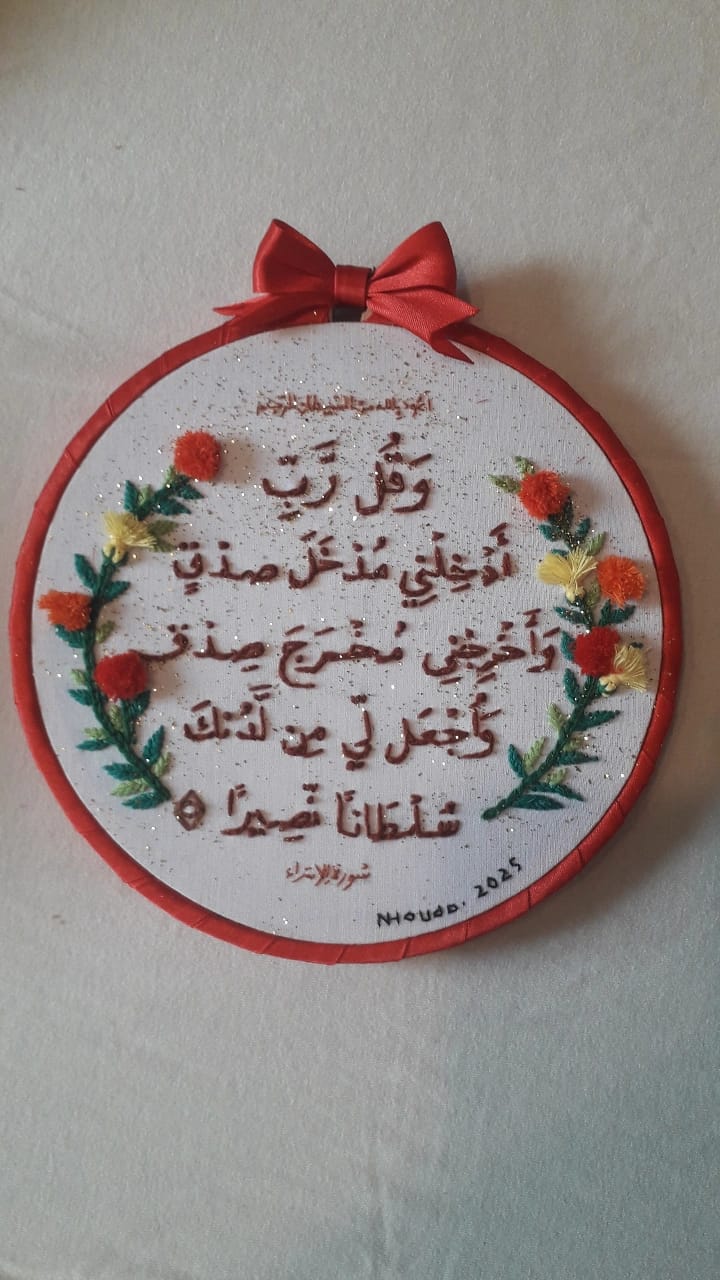 أعوذ بالله من الشيطان الرجيم
وَقُل رَّبِّ
أَدْخِلْنِي مُدْخَلَ صِدْقٍ
وَأَخْرِجْنِي مُخْرَجَ صِدْقٍ
وَاُجْعَل لِّي مِن لَّدُنْكَ
سُلْطَانًا نَّصِيرًا
سورة الإسراء
NHOUDD. 2025